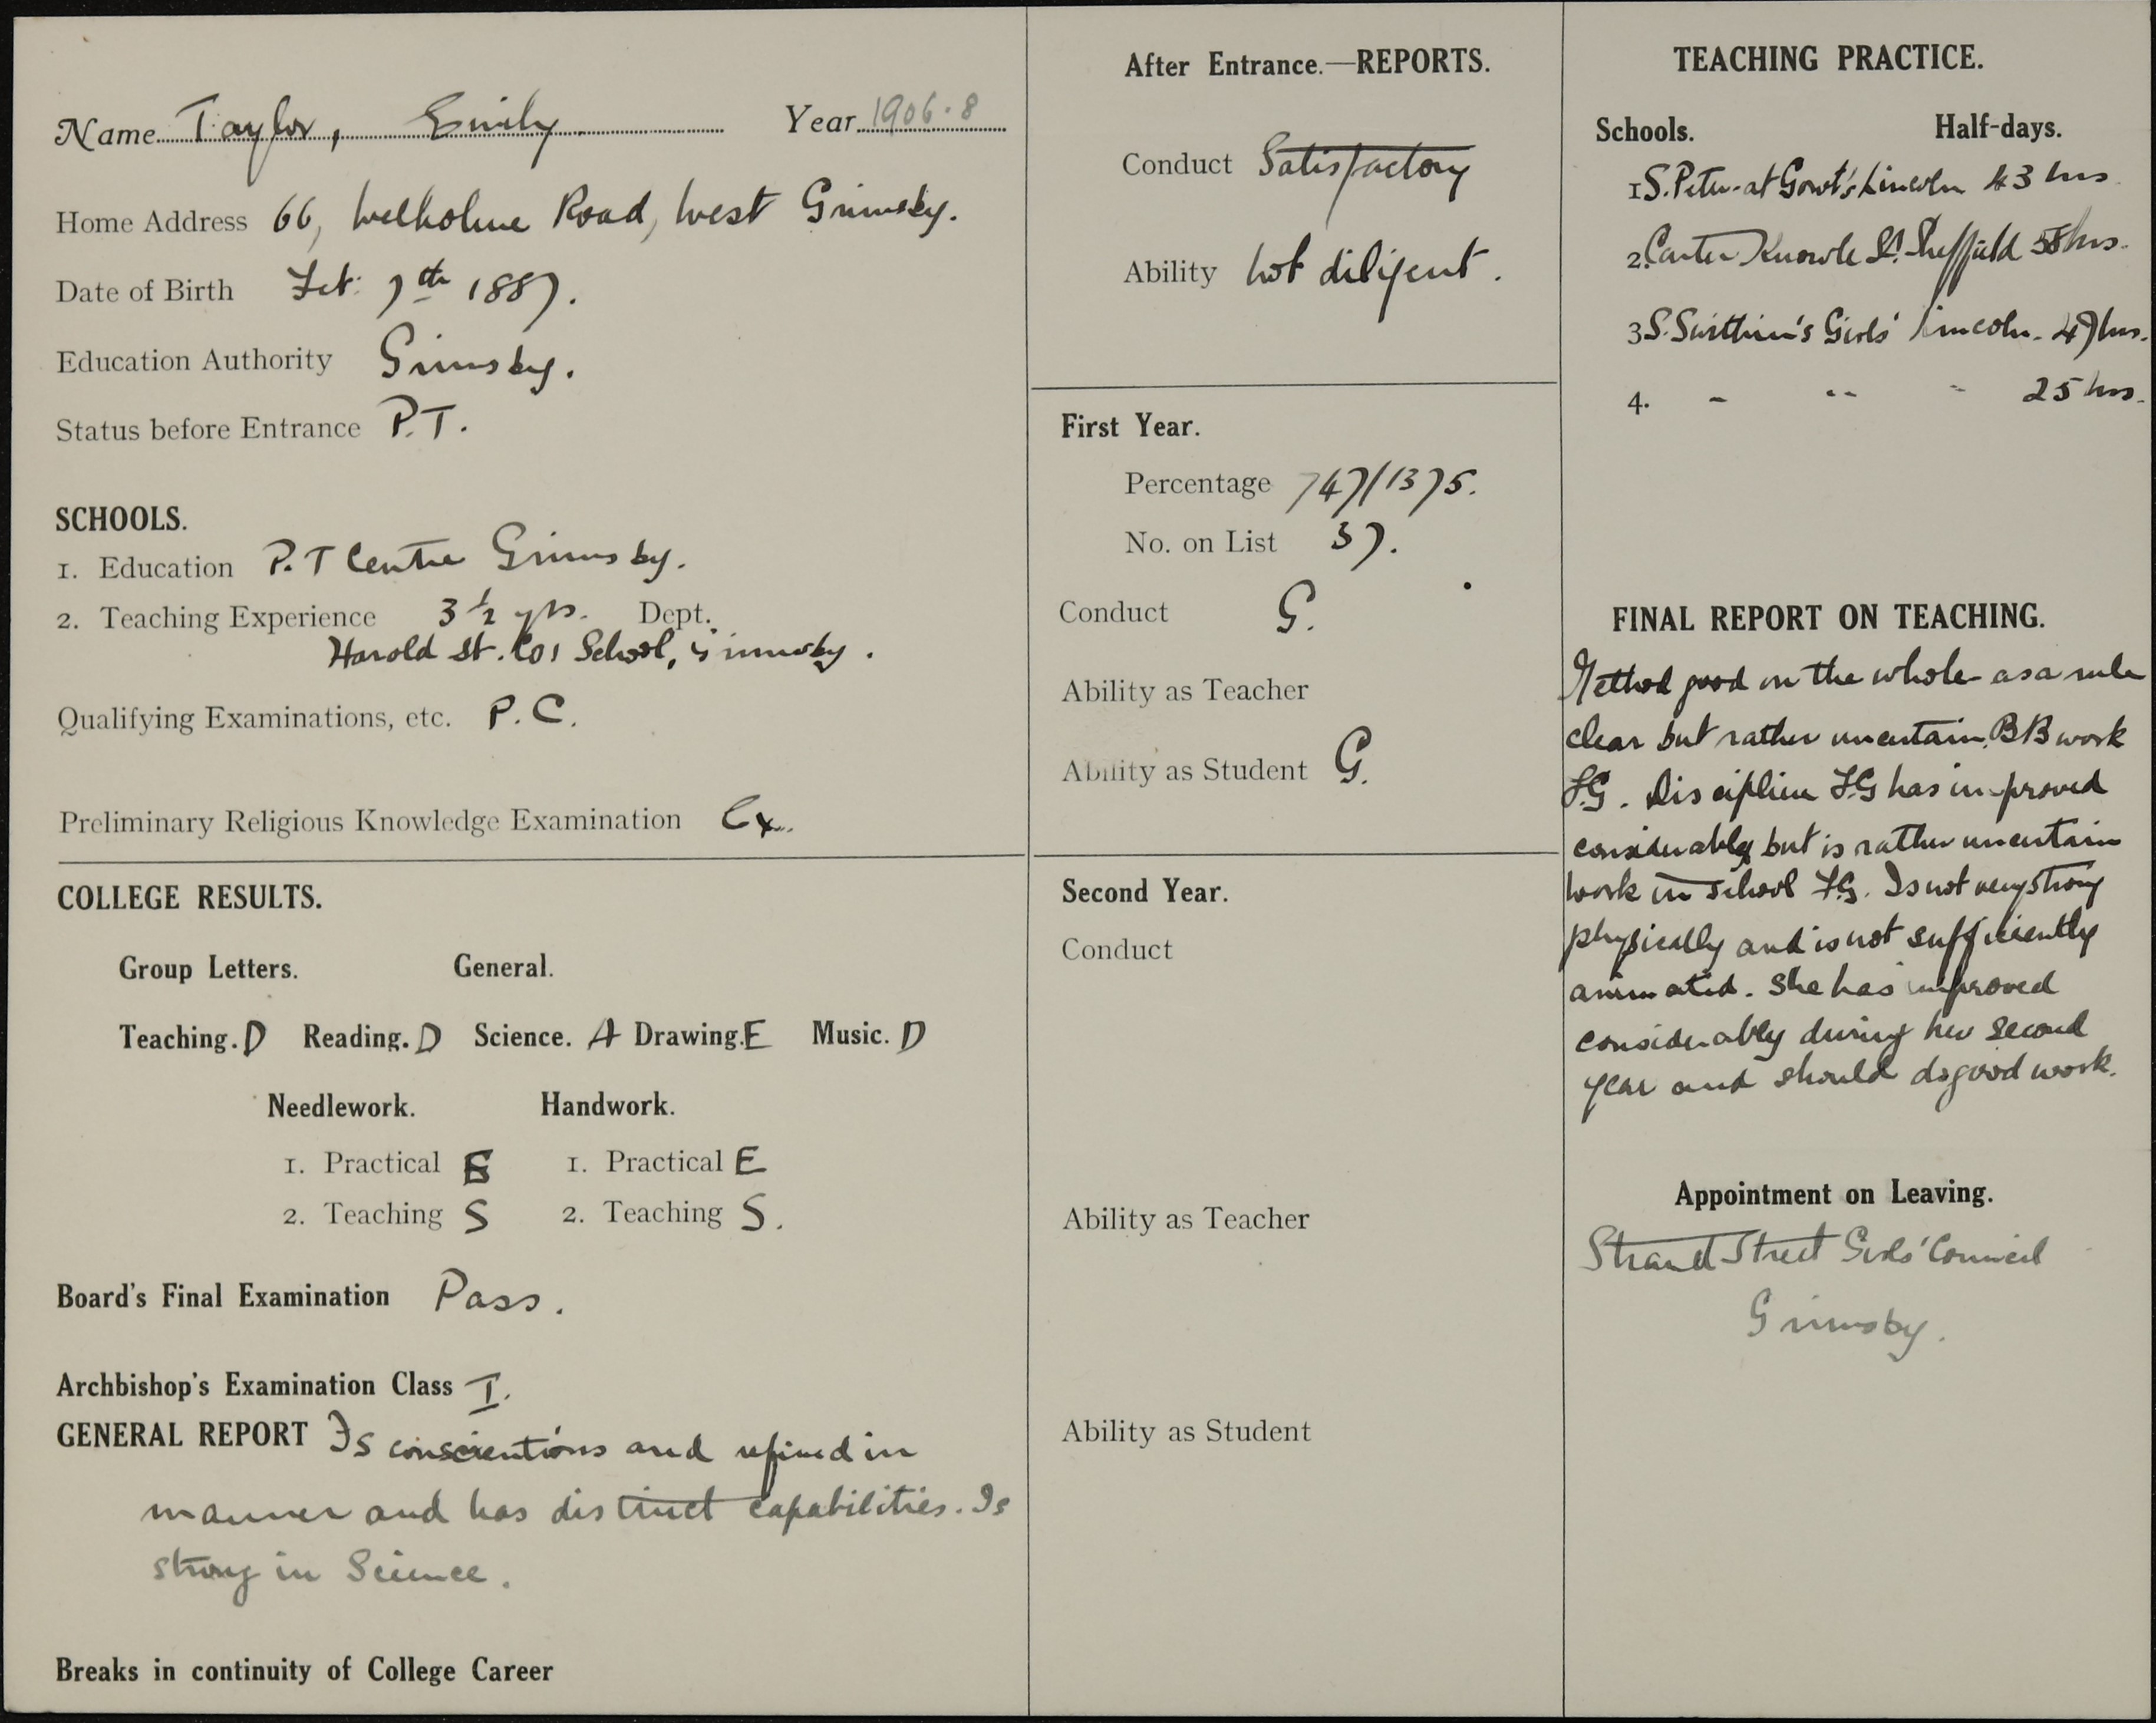 Name Taylor, Emily Year 1906-8
Home Address 66, Welholme Road, West Grimsby.
Date of Birth Feb: 7th 1887.
Education Authority Grimsby.
Status before Entrance P.T.
SCHOOLS.
1. Education P.T Centre Grimsby.
2. Teaching Experience 3½ yrs. Dept.
Harold St. Co1 School, Grimsby.
Qualifying Examinations, etc. P.C.
Preliminary Religious Knowledge Examination Ex.
COLLEGE RESULTS.
Group Letters. General.
Teaching. D Reading. D Science. A Drawing. E Music. D
Needlework. Handwork.
1. Practical 1. Practical E
2. Teaching S 2. Teaching S.
Board's Final Examination Pass.
Archbishop's Examination Class I.
GENERAL REPORT Is conscientious and refined in
manner and has distinct capabilities. Is
strong in Science.
Breaks in continuity of College Career
After Entrance.—REPORTS.
Conduct Satisfactory
Ability Not diligent.
First Year.
Percentage 747/1375.
No. on List 37.
Conduct G.
Ability as Teacher
Ability as Student G.
Second Year.
Conduct
Ability as Teacher
Ability as Student
TEACHING PRACTICE.
Schools. Half-days.
1 S. Peter-at Gowt's Lincoln 43 hrs
2. Carter Knowle Sheffield hrs.
3 S. Swithin's Girls' Lincoln. 47 hrs.
4. - -- - 25 hrs.
FINAL REPORT ON TEACHING.
Method good on the whole as a rule
clear but rather uncertain. BB work
F.G. Discipline F.G has improved
considerably but is rather uncertain
work in school F.G. Is not very strong
physically and is not sufficiently
animated. She has improved
considerably during her second
year and should do good work.
Appointment on Leaving.
Strand Street Girls' Council
Grimsby.